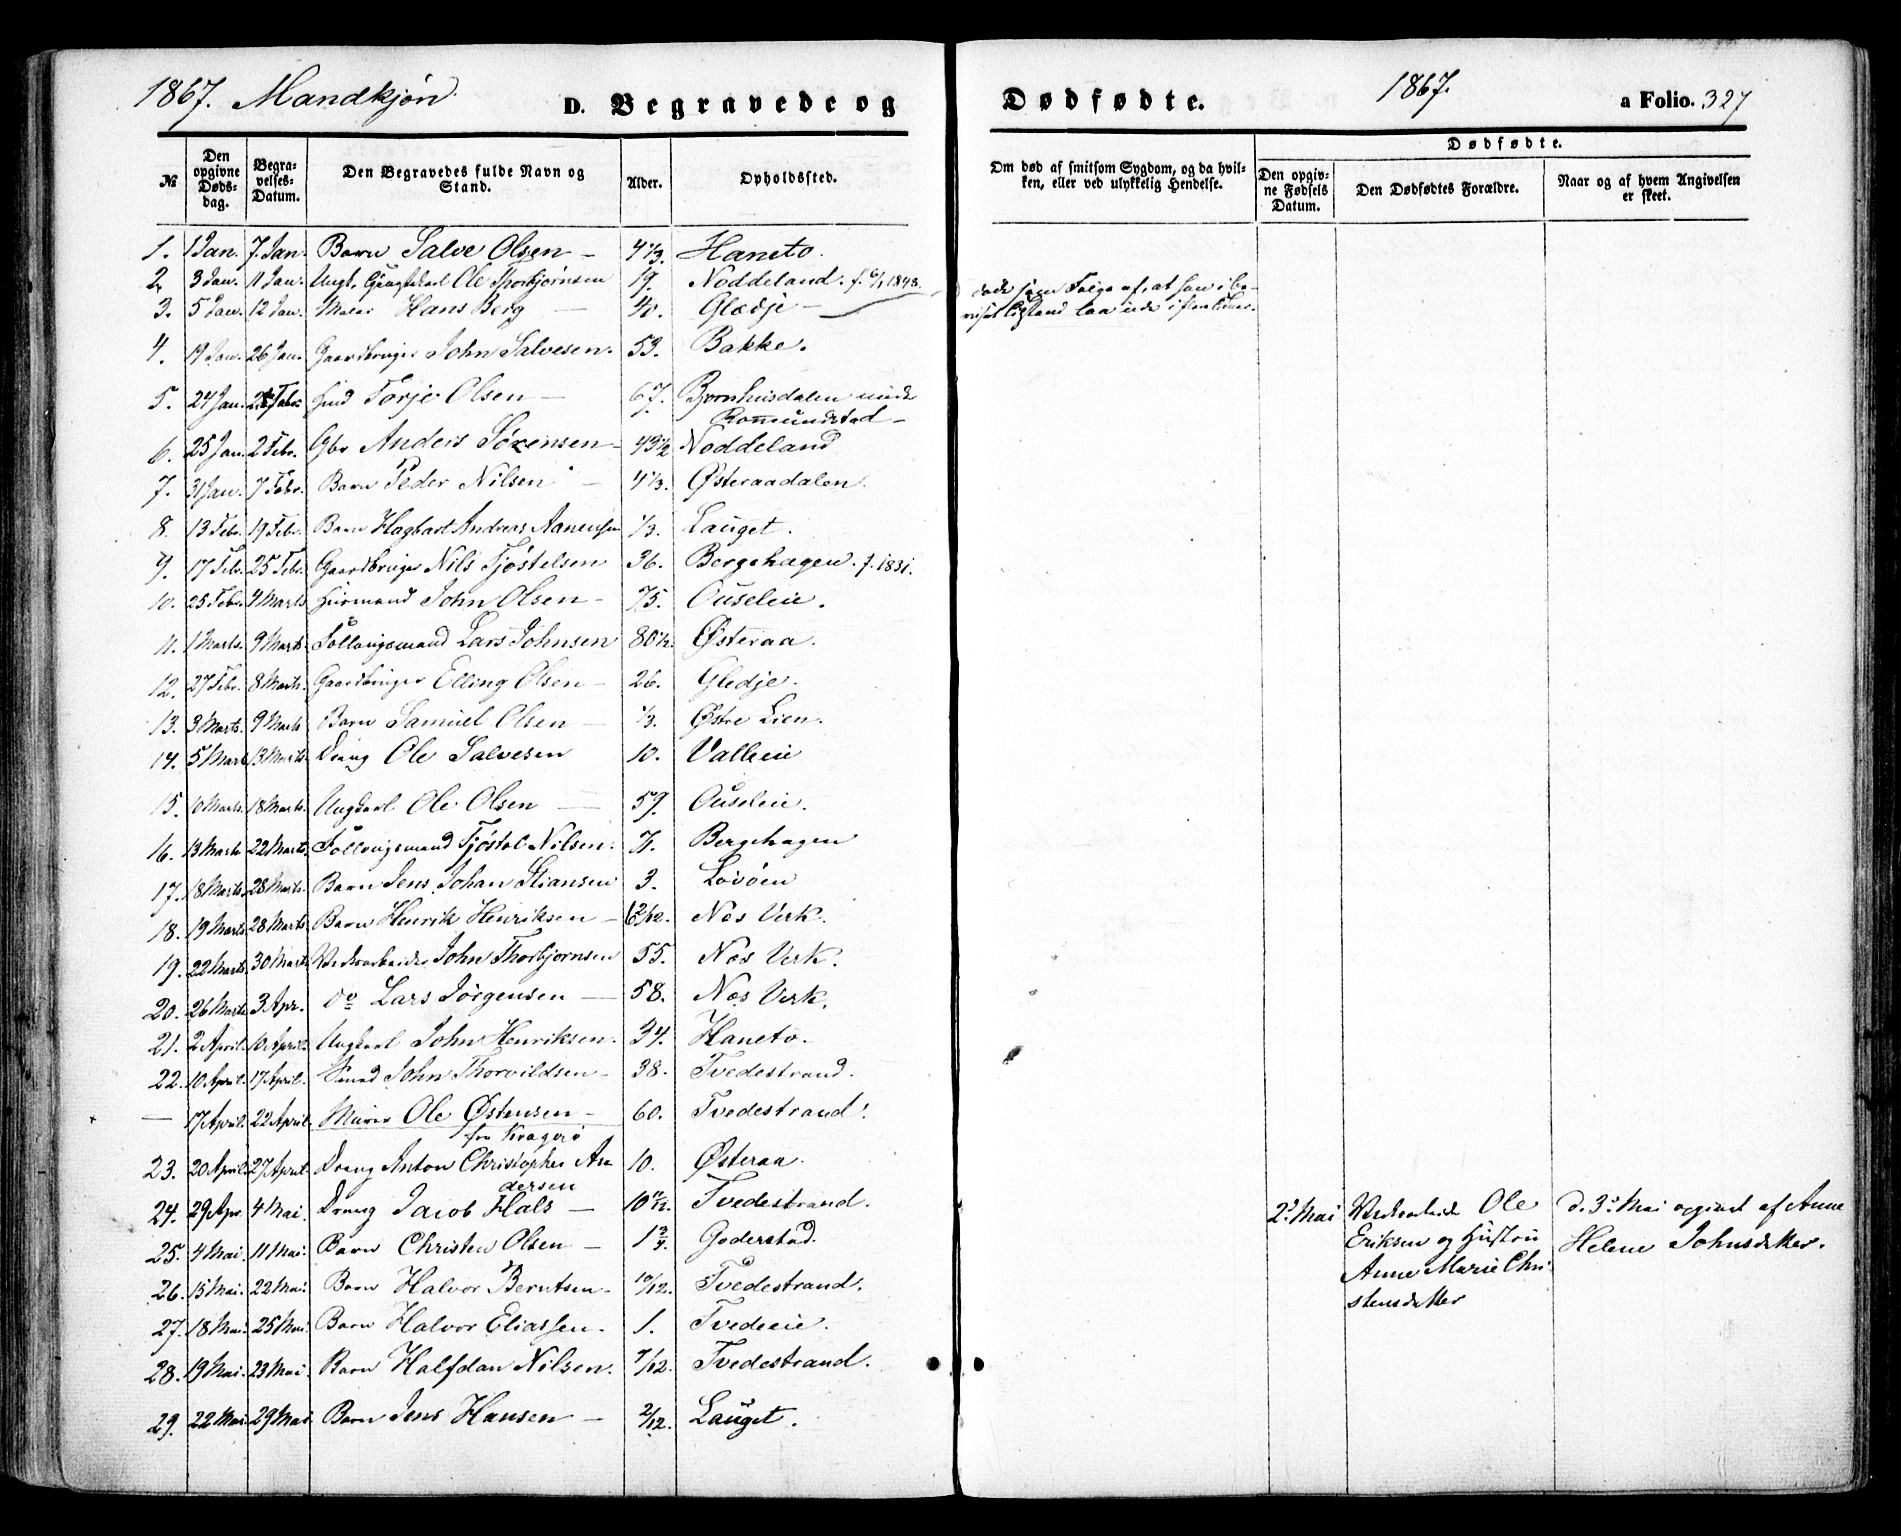 1867. Mandkjøn. D. Begravede og
№ Den opgivne Døds-dag. Begra-velses-Datum. Den Begravedes fulde Navn og Stand. Alder. Opholdssted.
1. 1 Jan. 7. Jan. Barn Salve Olsen – 4 1/3. Haneto.
2. 3 Jan. 11 Jan. Ungk. Ole Thorbjørnsen 19. Noddeland. f. 1848.
3. 5 Jan. 12 Jan. Maler Hans Berg — 40. Glødje —
4. 19 Jan. 26 Jan. Gaardbruger John Salvesen. 53. Bakke.
5. 24 Jan. Febr. Torje Olsen — 67. Bjørnhusdalen under
Romundstad –
6. 25 Jan. 2 Febr. Gbr Anders Sørensen – 49 1/2 Noddeland
7. 31 Jan. 7 Febr. Barn Peder Nilsen – 4 1/3. Østeraadalen.
8. 13 Febr. 19 Febr. Barn Hagbart Andreas Aanensen 1/3. Lauget.
9. 17 Feb. 25 Febr. Gaardbruger Nils Tjøstelsen 36. Bergshagen. f. 1831.
10. 25 Febr. 4 Marts Huusmand John Olsen – 75. Ouseleie.
11. 1 Marts. 9 Marts. Follaugsmand Lars Johnsen 80 1/2. Østeraa.
12. 27 Febr. 8 Marts. Gaardbruger Elling Olsen – 26. Gledje.
13. 3 Marts. 9 Marts Barn Samuel Olsen — 1/3. Østre Lien.
14. 5 Marts 13 Marts. Dreng Ole Salvesen 10. Valleeie
15. 10 Marts. 18 Marts. Ungkarl Ole Olsen — 59. Ouseleie.
16. 13 Marts. 22 Marts. Follaugsmand Tjøstol Nilsen. 71. Bergshagen
17. 18 Marts. 28 Marts. Barn Jens Johan Stiansen 3. Lovøen
18. 19 Marts. 28 Marts. Barn Henrik Henriksen – Nes Verk.
19. 22 Marts. 30 Marts Verksarbeider John Thorbjørnsen 55. Nes Verk.
20. 26 Marts. 3 Apr. do Lars Jørgensen — 58. Nes Verk.
21. 2 April. 10 April. Ungkarl John Henriksen. 34. Haneto.
22. 10 April. 17 April. Smed John Thorvildsen – 38. Tvedestrand.
— 17 April. 22 April. Murer Ole Østensen – 60. Tvedestrand.
fra Kragerø
23. 20 April. 27 April Dreng Anton Christopher An 10. Østeraa.
dersen
24. 29 Apr. 4 Mai. Dreng Jacob Hals — Tvedestrand.
25. 4 Mai. 11 Mai. Barn Christen Olsen – 1 3/4. Goderstad.
26. 15 Mai. 22 Mai. Barn Halvor Berntsen – 10/12. Tvedestrand.
27. 18 Mai. 25 Mai. Barn Halvor Eliassen. 1. Tvedeeie.
28. 19 Mai. 23 Mai. Barn Halfdan Nilsen. 7/12. Tvedestrand.
29. 22 Mai. 29 Mai Barn Jens Hansen – 2/12. Lauget.
Dødfødte. 1867. a Folio. 327
Om død af smitsom Sygdom, og da hvil-ken, eller ved ulykkelig Hendelse. Dødfødte.
Den opgiv-ne Fødsels Datum. Den Dødfødtes Forældre. Naar og af hvem Angivelsen er skeet.
døde som Følge af, at han i be-
ruset Tilstand laa ude i
2d Mai Verksarbeider Ole d. 3d Mai opgivet af Anne
Eriksen og Hustru Helene Johnsdatter.
Anne Marie Chri-
stensdatter